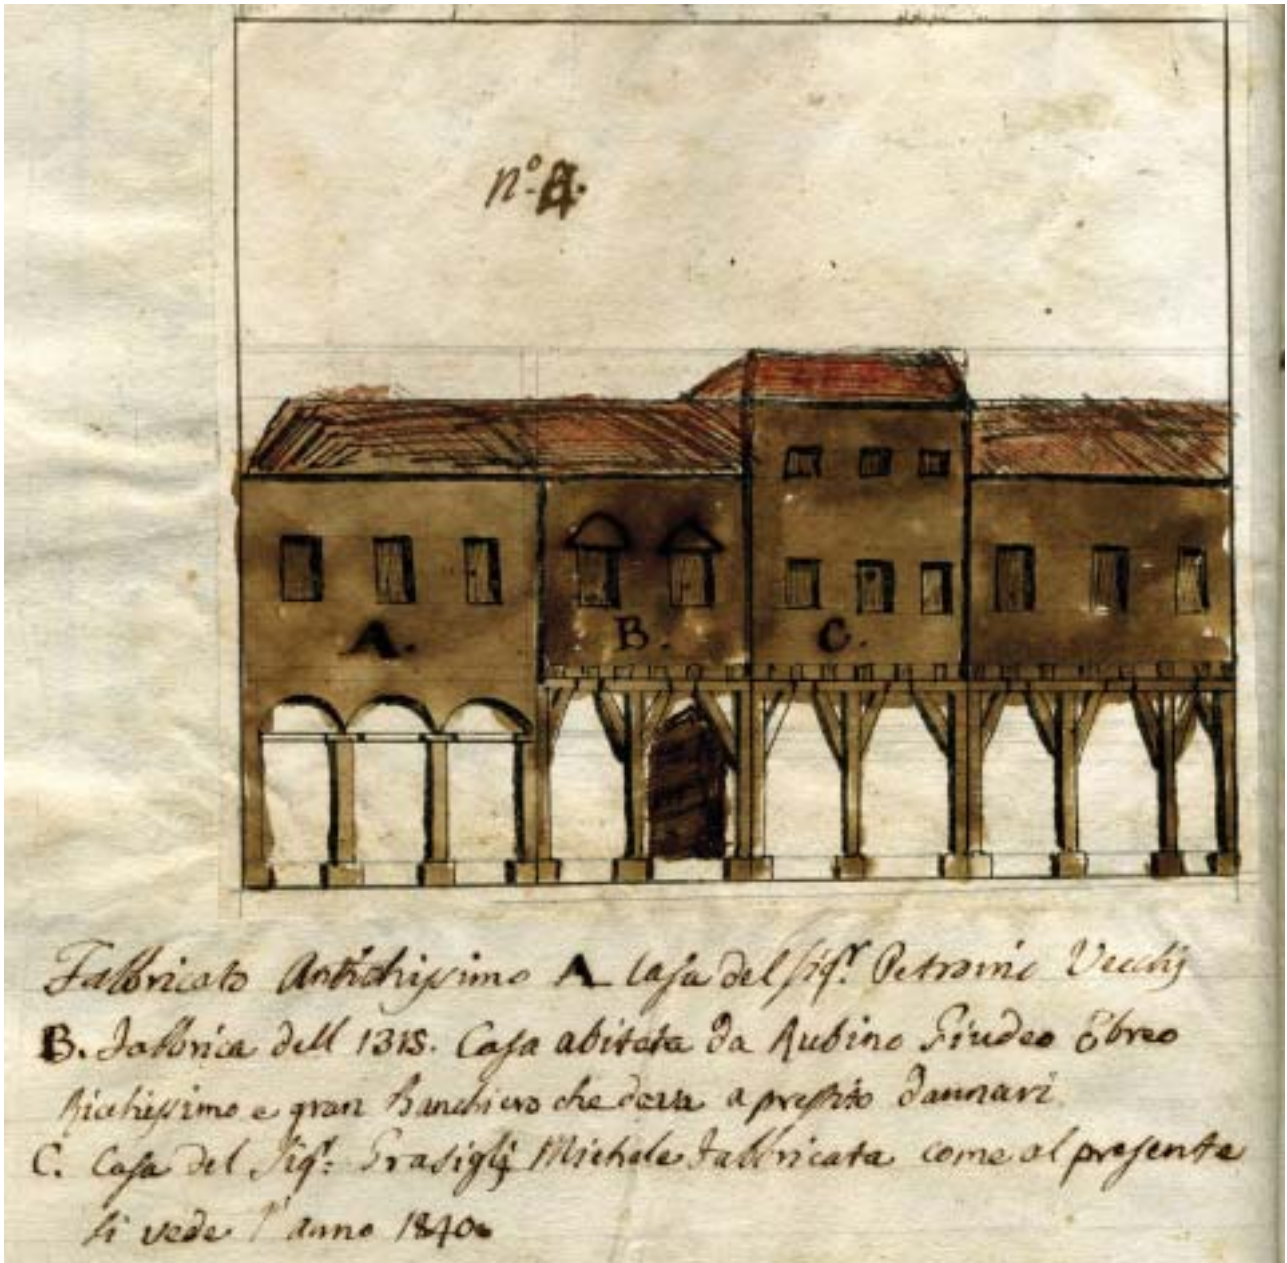 nº 4.
A.
B.
C.
Fabbricato Antichissimo A Casa del Sigr. Petronio Vecchj
B. Fabbrica dell 1318. Casa abitata da Rubino Giudeo Ebreo
Richissimo e gran Banchiero che dava a prestito dannari
C. Casa del Sigr: Grasiglj Michele Fabbricata come al presente
si vede l' anno 1840.